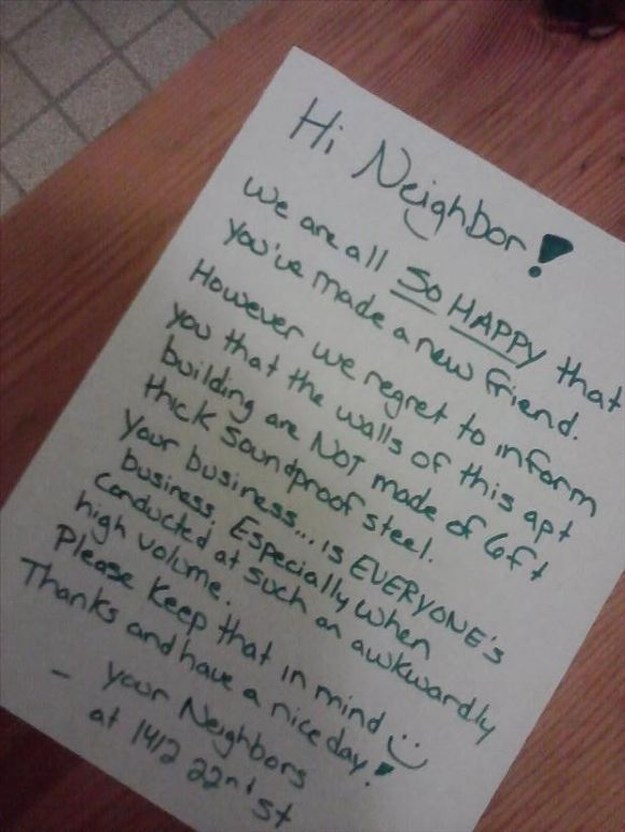 Hi Neighbor!
We are all SO HAPPY that
you've made a new friend.
However we regret to inform
you that the walls of this apt
building are NOT made of 6ft
thick soundproof steel.
Your business... is EVERYONE'S
business. Especially when
conducted at such an awkwardly
high volume.
Please keep that in mind :)
Thanks and have a nice day!
- your Neighbors
at 1412 22nd St